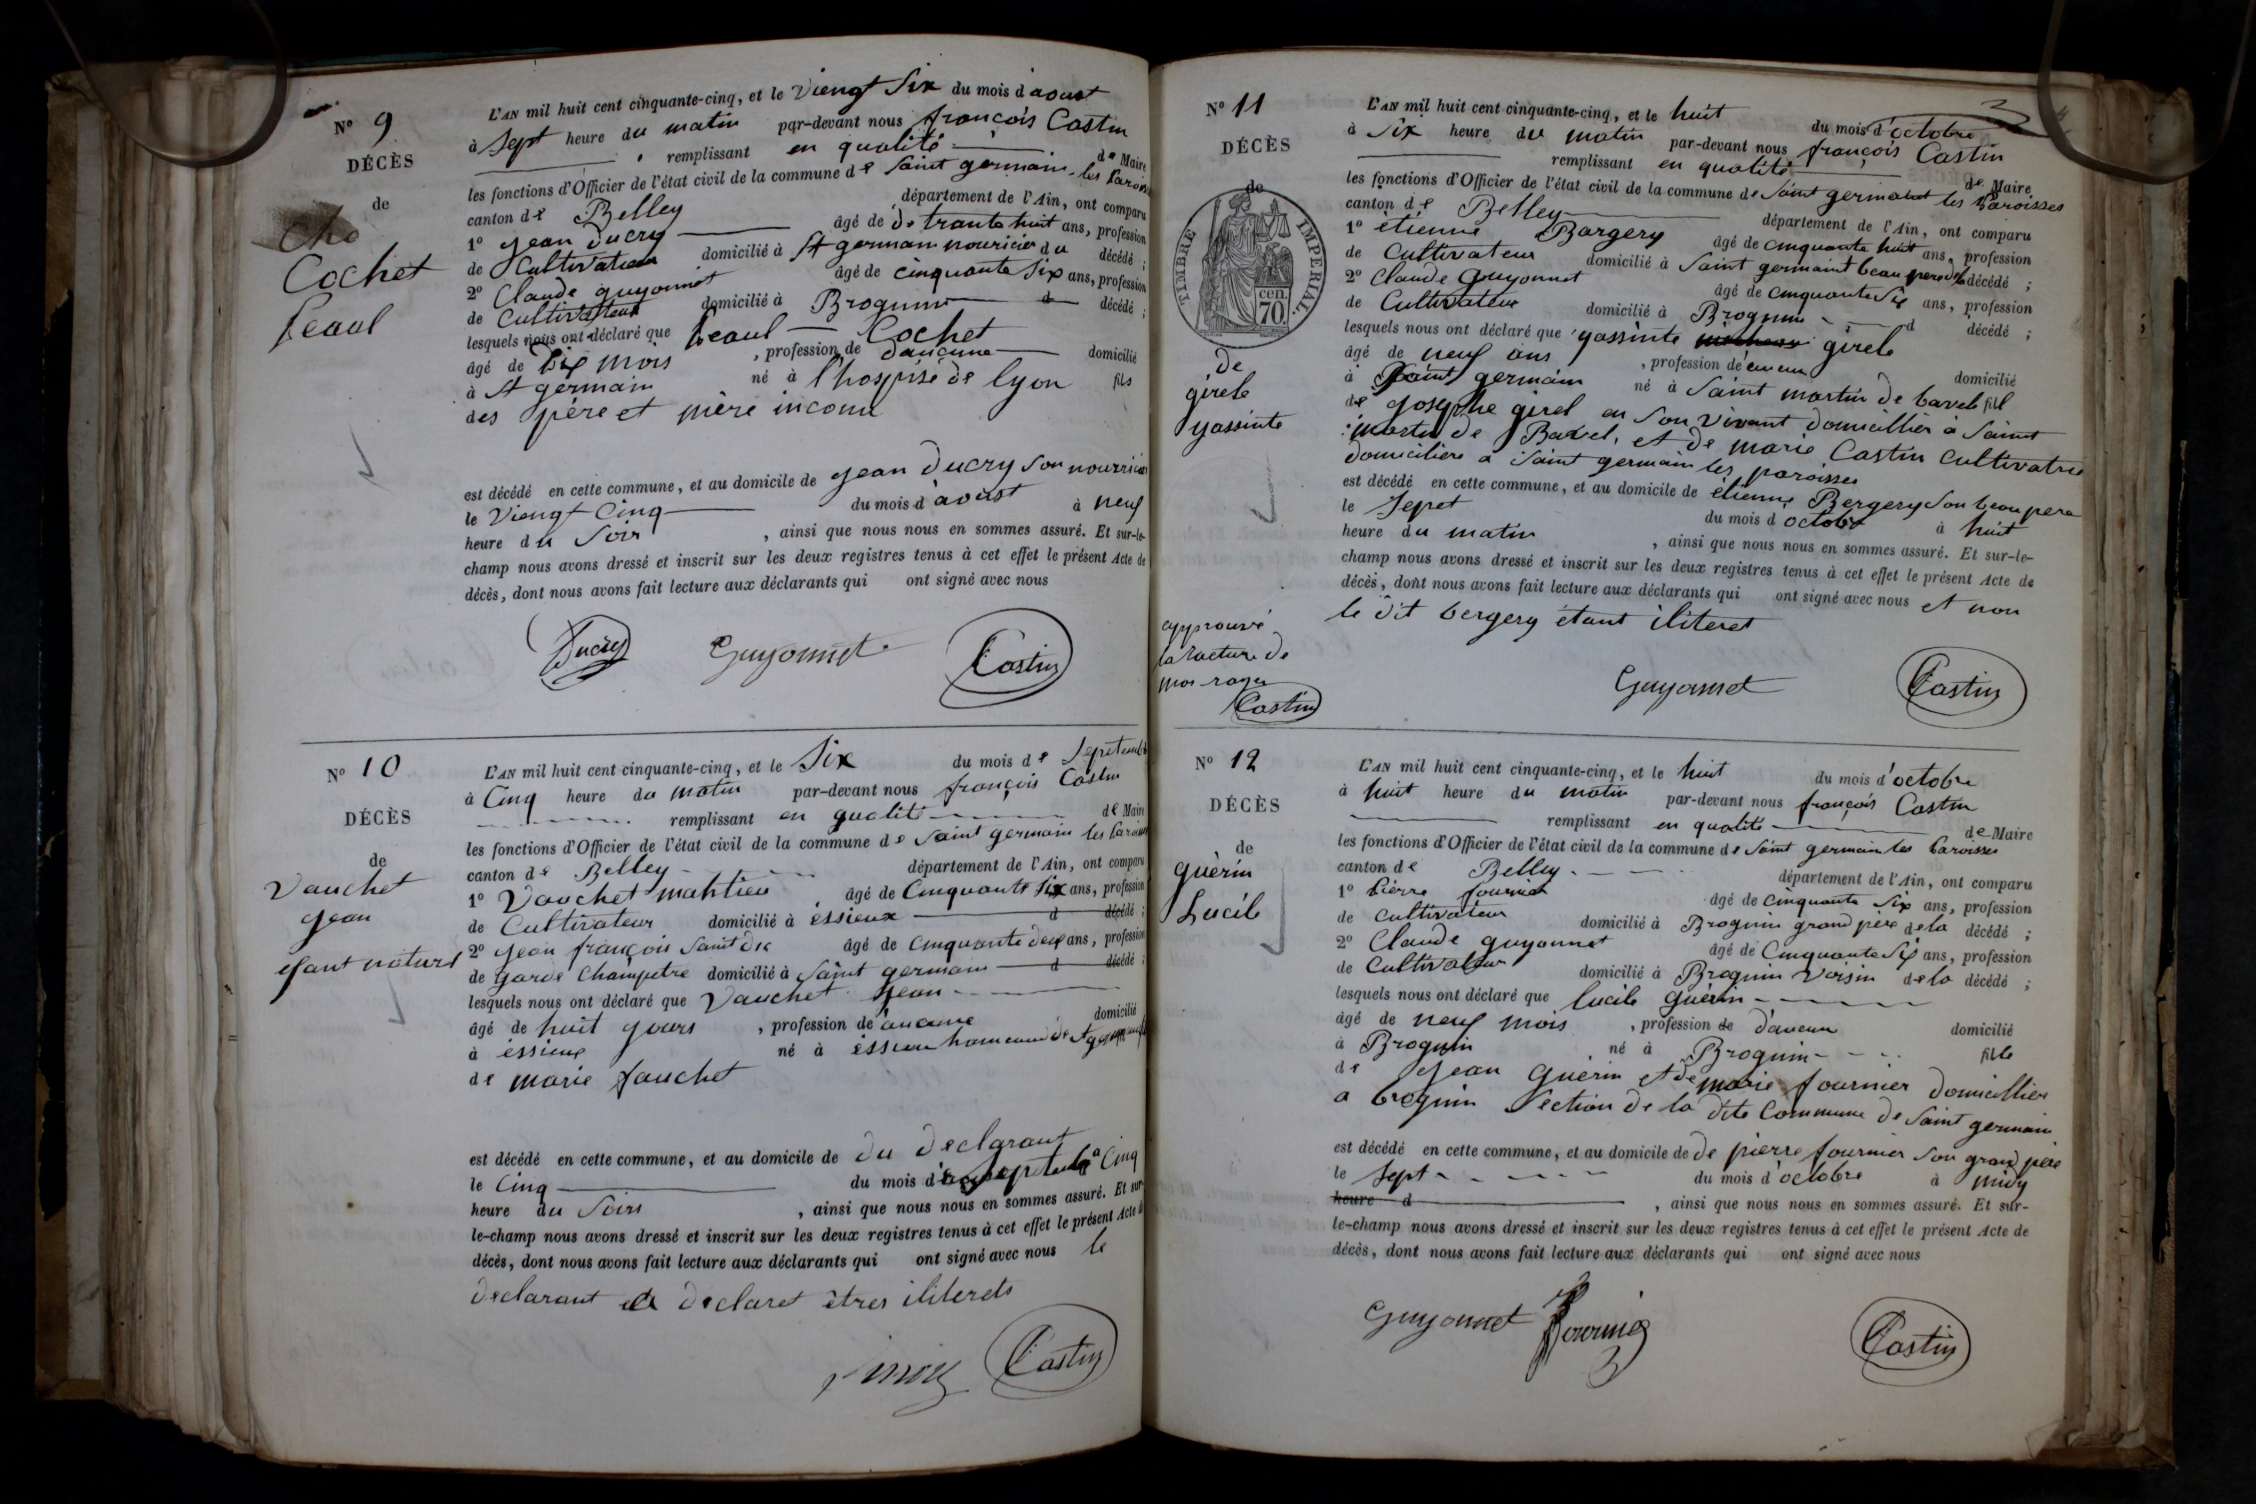 N° 9
DÉCÈS
de
Cho
Cochet
peaul
L'AN mil huit cent cinquante-cinq, et le viengt six du mois d'aoust
à sept heure du matin par-devant nous françois Castin
remplissant en qualité de Maire
les fonctions d'Officier de l'état civil de la commune de Saint germain les Parois
canton de Belley département de l'Ain, ont comparu
1° jean Ducry âgé de de trante huit ans, profession
de Cultivateur domicilié à St germain nouricier du décédé ;
2° Claude guyonnet âgé de cinquante six ans, profession
de Cultivateur domicilié à Brognin d décédé ;
lesquels nous ont déclaré que peaul Cochet
âgé de Dix mois, profession de d'aucune domicilié
à St germain né à l'hospise de lyon fils
des père et mère inconu
est décédé en cette commune, et au domicile de jean Ducry son nourricier
le viengt Cinq du mois d'aoust à neuf
heure du Soir, ainsi que nous nous en sommes assuré. Et sur-le-
champ nous avons dressé et inscrit sur les deux registres tenus à cet effet le présent Acte de
décès, dont nous avons fait lecture aux déclarants qui ont signé avec nous
Ducry Guyonnet Castin
N° 10
DÉCÈS
de
Vauchet
jean
efant naturel
L'AN mil huit cent cinquante-cinq, et le Six du mois de Septembre
à Cinq heure du matin par-devant nous françois Castin
remplissant en qualité de Maire
les fonctions d'Officier de l'état civil de la commune de Saint germain les Parois
canton de Belley département de l'Ain, ont comparu
1° Vauchet mahtieu âgé de Cinquante six ans, profession
de Cultivateur domicilié à éssieux d décédé ;
2° jean françois âgé de cinquante deux ans, profession
de garde Champetre domicilié à Saint germain d décédé ;
lesquels nous ont déclaré que Vauchet jean
âgé de huit jours, profession de aucune domicilié
à éssieux né à éssieu hameau de St germain
de marie fauchet
est décédé en cette commune, et au domicile de du declarant
le Cinq du mois de septembre à Cinq
heure du Soirs, ainsi que nous nous en sommes assuré. Et sur-
le-champ nous avons dressé et inscrit sur les deux registres tenus à cet effet le présent Acte de
décès, dont nous avons fait lecture aux déclarants qui ont signé avec nous le
declarant declaret êtres iliterets
Castin
N° 11
DÉCÈS
de
TIMBRE IMPERIAL
cen.
70
De
girele
yassinte
L'AN mil huit cent cinquante-cinq, et le huit du mois d'octobre
à Six heure du matin par-devant nous françois Castin
remplissant en qualité de Maire
les fonctions d'Officier de l'état civil de la commune de Saint germaint les Paroisses
canton de Belley département de l'Ain, ont comparu
1° étienne Bargery âgé de cinquante huit ans, profession
de Cultivateur domicilié à Saint germaint beau pere de la décédé ;
2° Claude guyonnet âgé de cinquante Six ans, profession
de Cultivateur domicilié à Brognin d décédé ;
lesquels nous ont déclaré que yassinte girele
âgé de neuf ans, profession d'aucun domicilié
à Saint germain né à Saint martin de bavele fill
de Josephe girel en son vivant domicillier a Saint
martin de Bavel, et de marie Castin cultivatrice
domiciliere a Saint germain les paroisses
est décédé en cette commune, et au domicile de étienne Bergery son beau pere
le Sepet du mois d'octobre à huit
heure du matin, ainsi que nous nous en sommes assuré. Et sur-le-
champ nous avons dressé et inscrit sur les deux registres tenus à cet effet le présent Acte de
décès, dont nous avons fait lecture aux déclarants qui ont signé avec nous et non
le dit bergery étant iliteret
approuvé
la racture de
mos rayer
Castin
Guyonnet Castin
N° 12
DÉCÈS
de
guèrin
Lucile
L'AN mil huit cent cinquante-cinq, et le huit du mois d'octobre
à huit heure du matin par-devant nous françois Castin
remplissant en qualité de Maire
les fonctions d'Officier de l'état civil de la commune de Saint germain les Paroisses
canton de Belley département de l'Ain, ont comparu
1° pièrre fournier âgé de cinquante six ans, profession
de cultivateur domicilié à Brognin grand père de la décédé ;
2° Claude guyonnet âgé de Cinquante Six ans, profession
de Cultivateur domicilié à Brognin voisin de la décédé ;
lesquels nous ont déclaré que lucile guèrin
âgé de neuf mois, profession de d'aucun domicilié
à Brognin né à Brognin fille
de jean guèrin et de marie fournier domicillier
a brognin Section de la dite Commune de Saint germain
est décédé en cette commune, et au domicile de De pierre fournier son grand père
le Sept du mois d'octobre à midy
heure d, ainsi que nous nous en sommes assuré. Et sur-
le-champ nous avons dressé et inscrit sur les deux registres tenus à cet effet le présent Acte de
décès, dont nous avons fait lecture aux déclarants qui ont signé avec nous
Guyonnet Fournier Castin